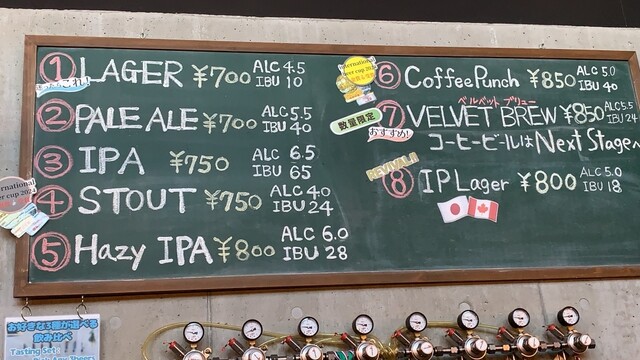 ① LAGER ¥700 ALC 4.5 IBU 10
② PALE ALE ¥700 ALC 5.5 IBU 40
③ IPA ¥750 ALC 6.5 IBU 65
④ STOUT ¥750 ALC 4.0 IBU 24
⑤ Hazy IPA ¥800 ALC 6.0 IBU 28
⑥ CoffeePunch ¥850 ALC 5.0 IBU 40
数量限定
おすすめ!
ベルベット ブリュー
⑦ VELVET BREW ¥850 ALC 5.5 IBU 24
コーヒービールは Next Stageへ
REVIVAL!!
⑧ IPLager ¥800 ALC 5.0 IBU 18
お好きな3種が選べる
飲み比べ
Tasting Set